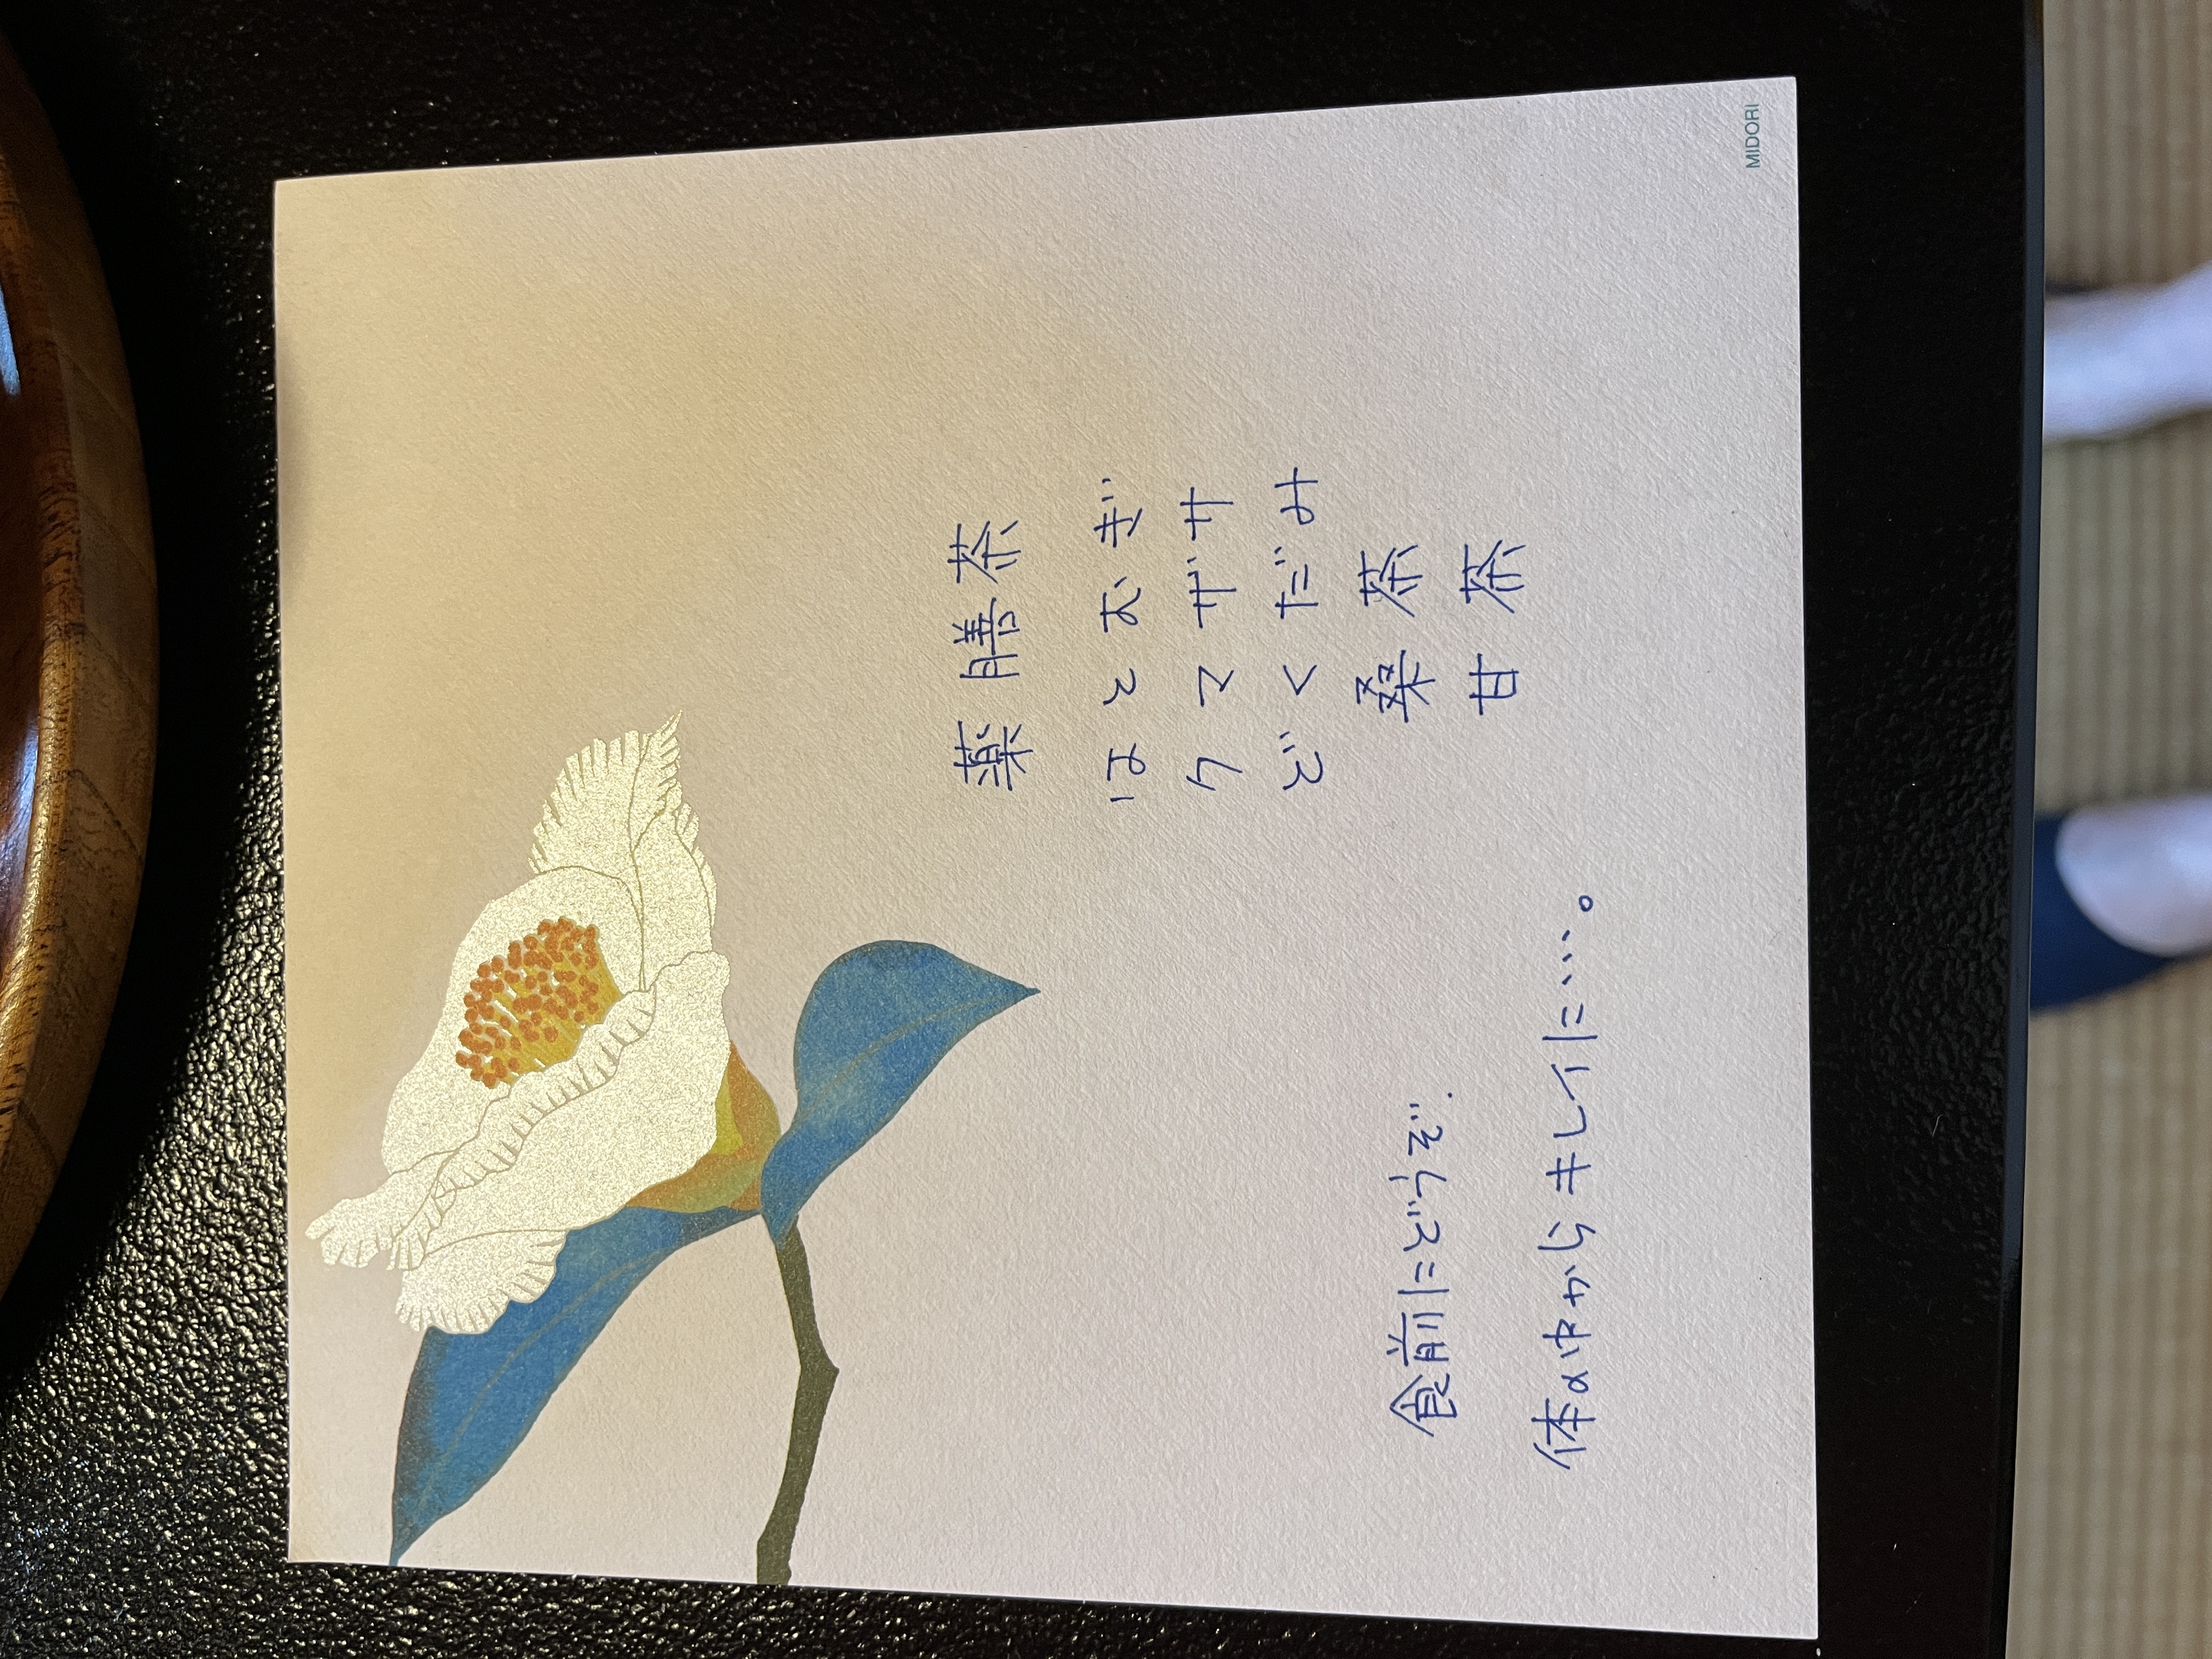 薬膳茶
はとむぎ
クマザサ
どくだみ
桑茶
甘茶
食前にどうぞ.
体の中からキレイに…。
MIDORI